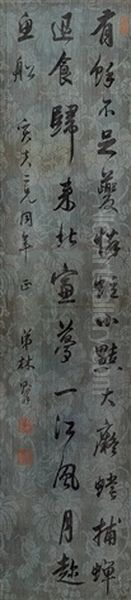 有餘不足夔憐蚿小黠大癡螳捕蟬
退食歸來北窗夢一江風月趁
魚船 三兄同年 正 弟林